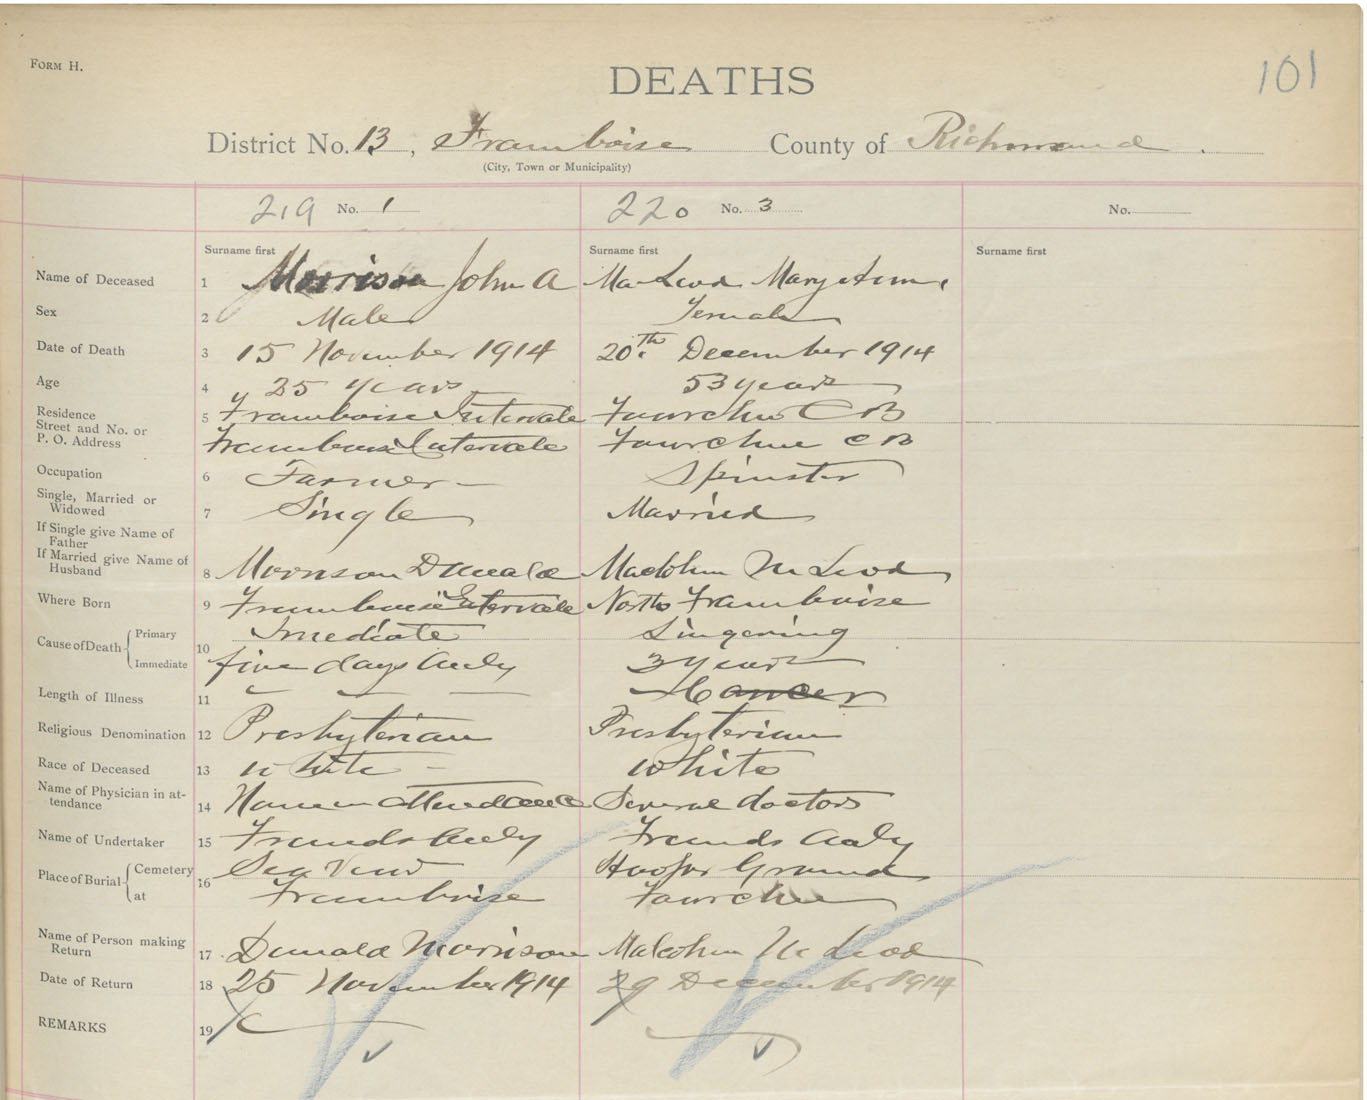 FORM H.
DEATHS
101
District No. 13, Framboise County of Richmond.
(City, Town or Municipality)
219 No. 1 220 No. 3 No.
Surname first Surname first Surname first
Name of Deceased 1 Morrison John A MacLeod Mary Ann
Sex 2 Male Female
Date of Death 3 15 November 1914 20th December 1914
Age 4 25 years 53 years
Residence 5 Framboise Intervale Fourchu C B
Street and No. or
P. O. Address Framboise Intervale Fourchu C B
Occupation 6 Farmer Spinster
Single, Married or
Widowed 7 Single Married
If Single give Name of
Father
If Married give Name of
Husband 8 Morrison Donald Malcolm McLeod
Where Born 9 Framboise Intervale North Framboise
Cause of Death Primary Imediate Lingering
10
Immediate five days only 3 years
Length of Illness 11 Cancer
Religious Denomination 12 Presbyterian Presbyterian
Race of Deceased 13 White White
Name of Physician in at-
tendance 14 None in attendance Several doctors
Name of Undertaker 15 Friends only Friends only
Place of Burial Cemetery Sea View Hooper Ground
16
at Framboise Fourchu
Name of Person making
Return 17 Donald Morrison Malcolm McLeod
Date of Return 18 25 November 1914 29 December 1914
REMARKS 19